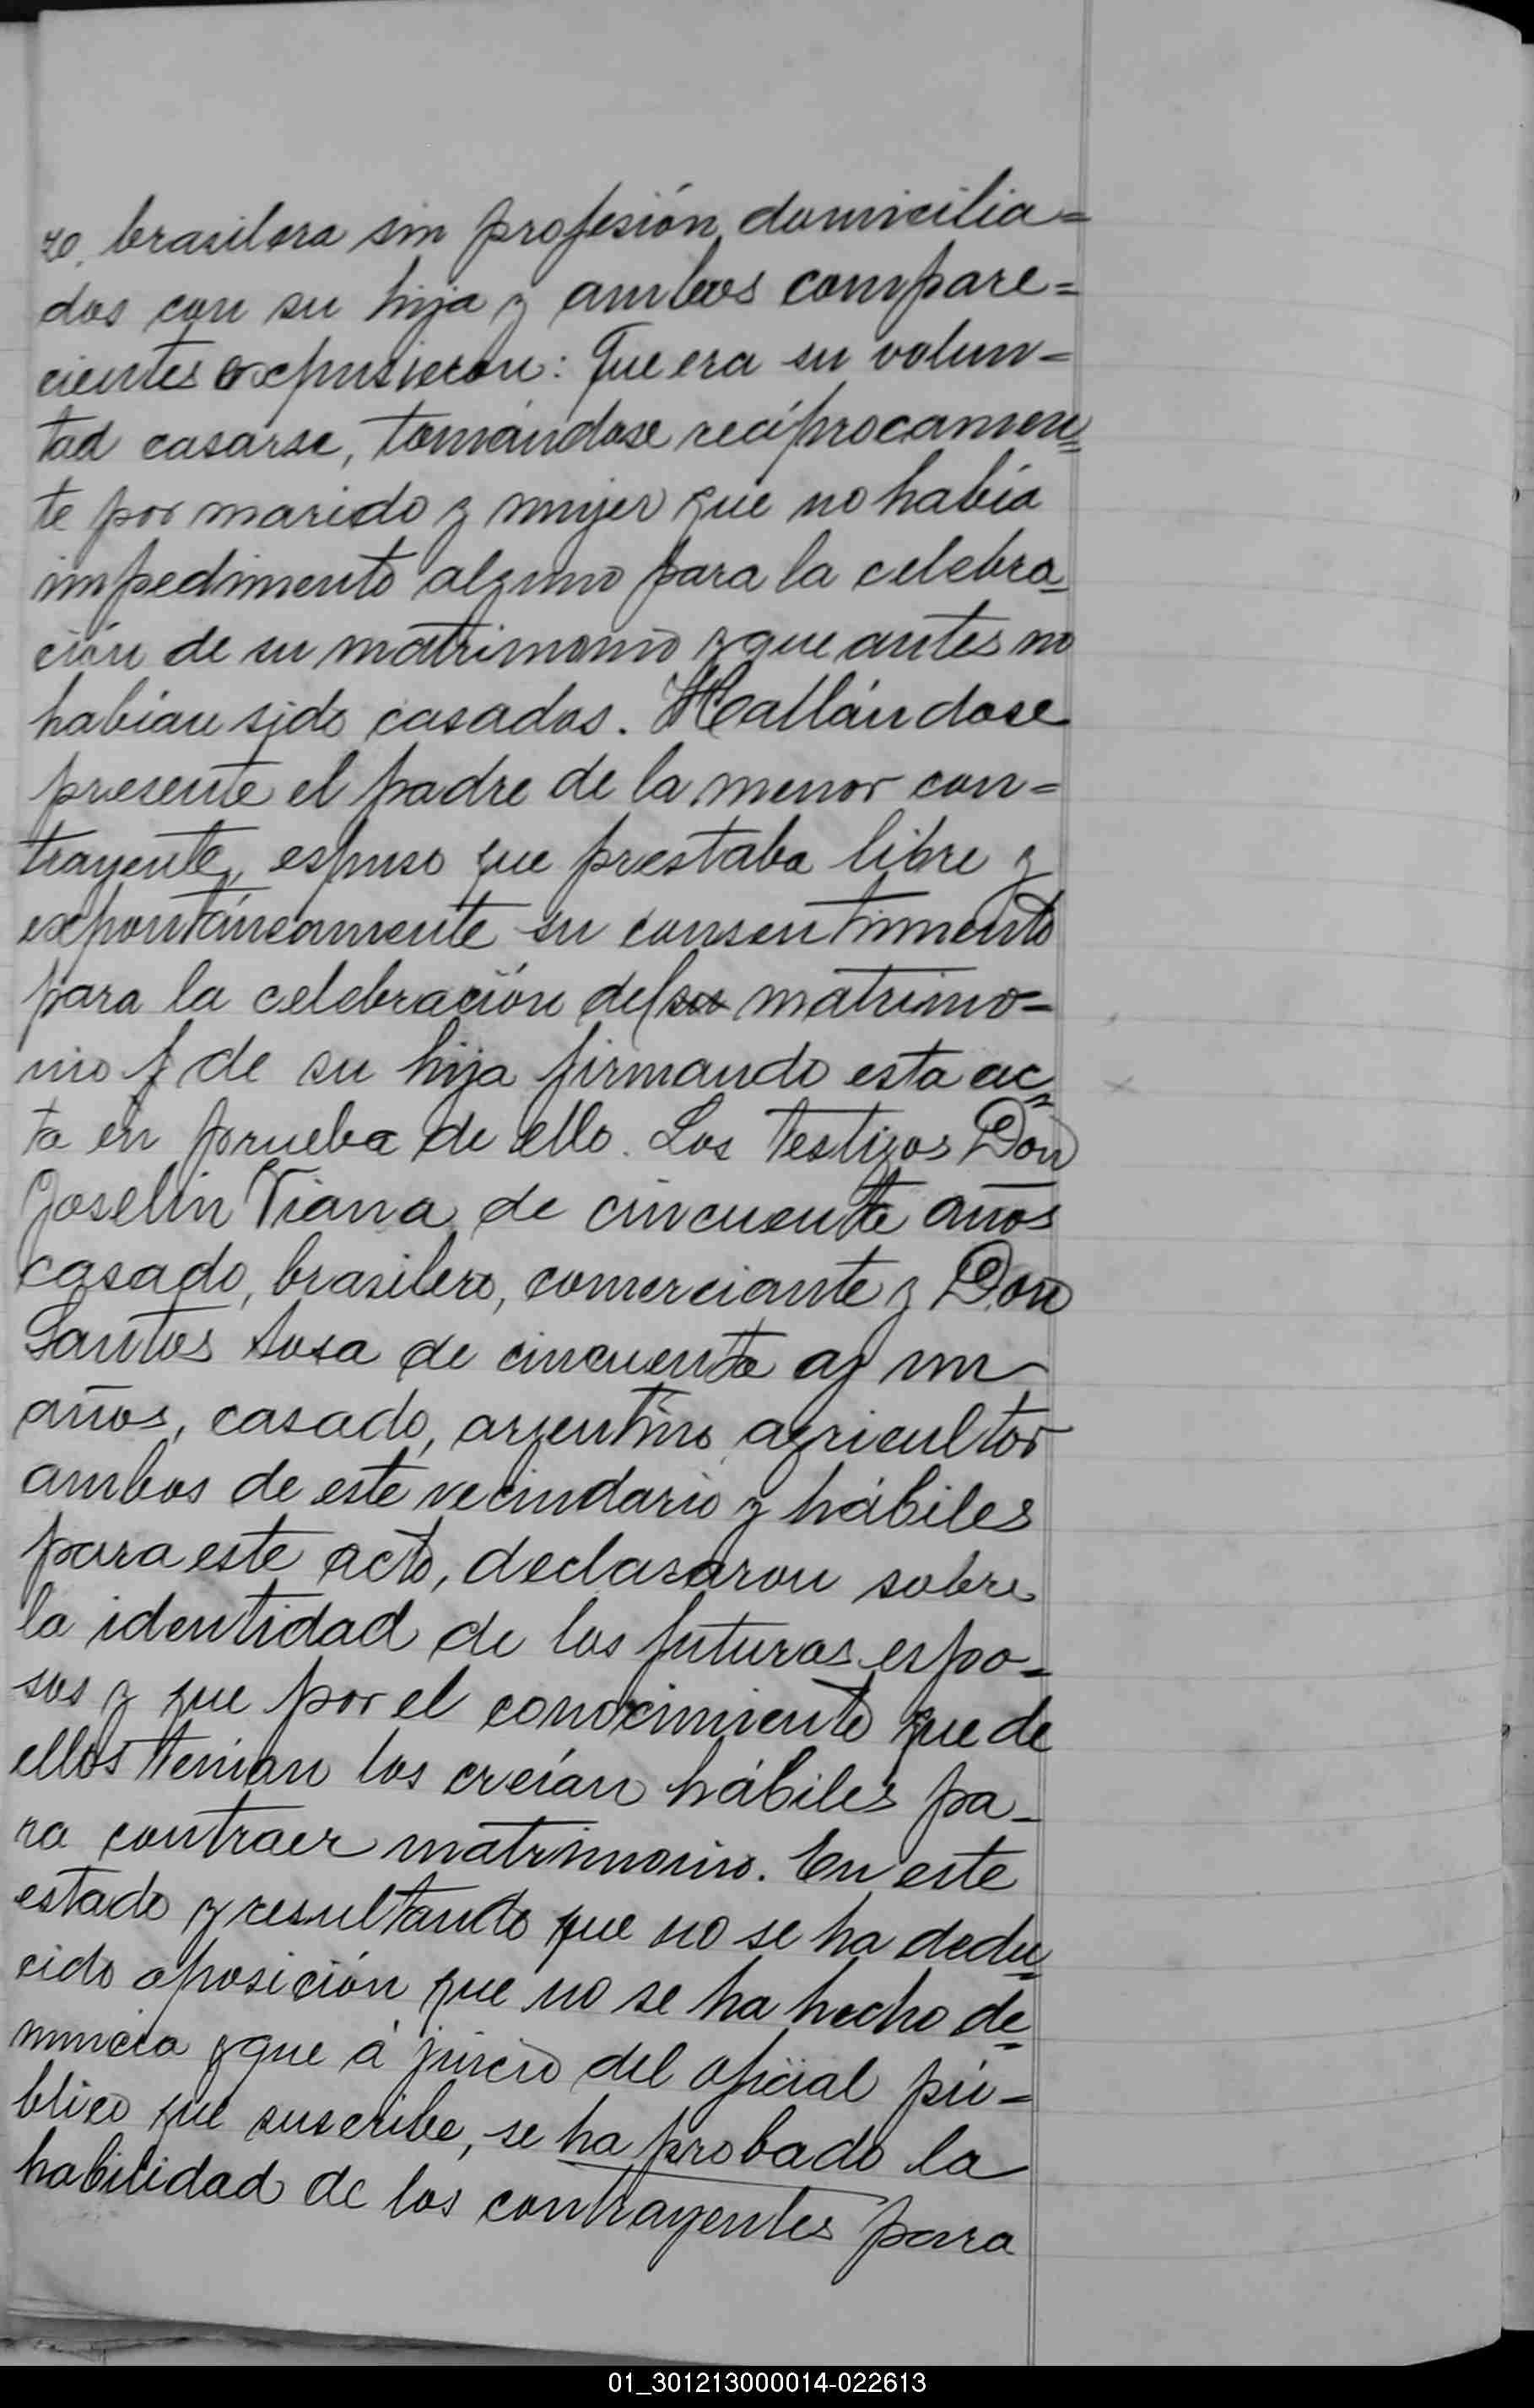 ze, brasilera sin profesión, domicilia=
dos con su hija y ambos compare=
cientes expusieron: Que era su volun=
tad casarse, tomándose recíprocamen=
te por marido y mujer que no había
impedimento alguno para la celebra=
ción de su matrimonio y que antes no
habían sido casados. Hallándose
presente el padre de la menor con=
trayente, espuso que prestaba libre y
expontáneamente su consentimento
para la celebración del su matrimo=
nio de su hija firmando esta ac=
ta en prueba de ello. Los testigos Don
Joselin Viana, de cincuenta años
casado, brasilero, comerciante y Don
Santos Sosa de cincuenta y un
años, casado, argentino, agricultor
ambos de este vecindario y hábiles
para este acto, declararon sobre
la identidad de los futuros espo=
sos y que por el conocimiento que de
ellos tenían los creían hábiles pa=
ra contraer matrimonio. En este
estado y resultando que no se ha dedu=
cido oposición que no se ha hecho de=
nuncia y que á juicio del oficial pú=
blico que suscribe, se ha probado la
habilidad de los contrayentes para
01_301213000014-022613